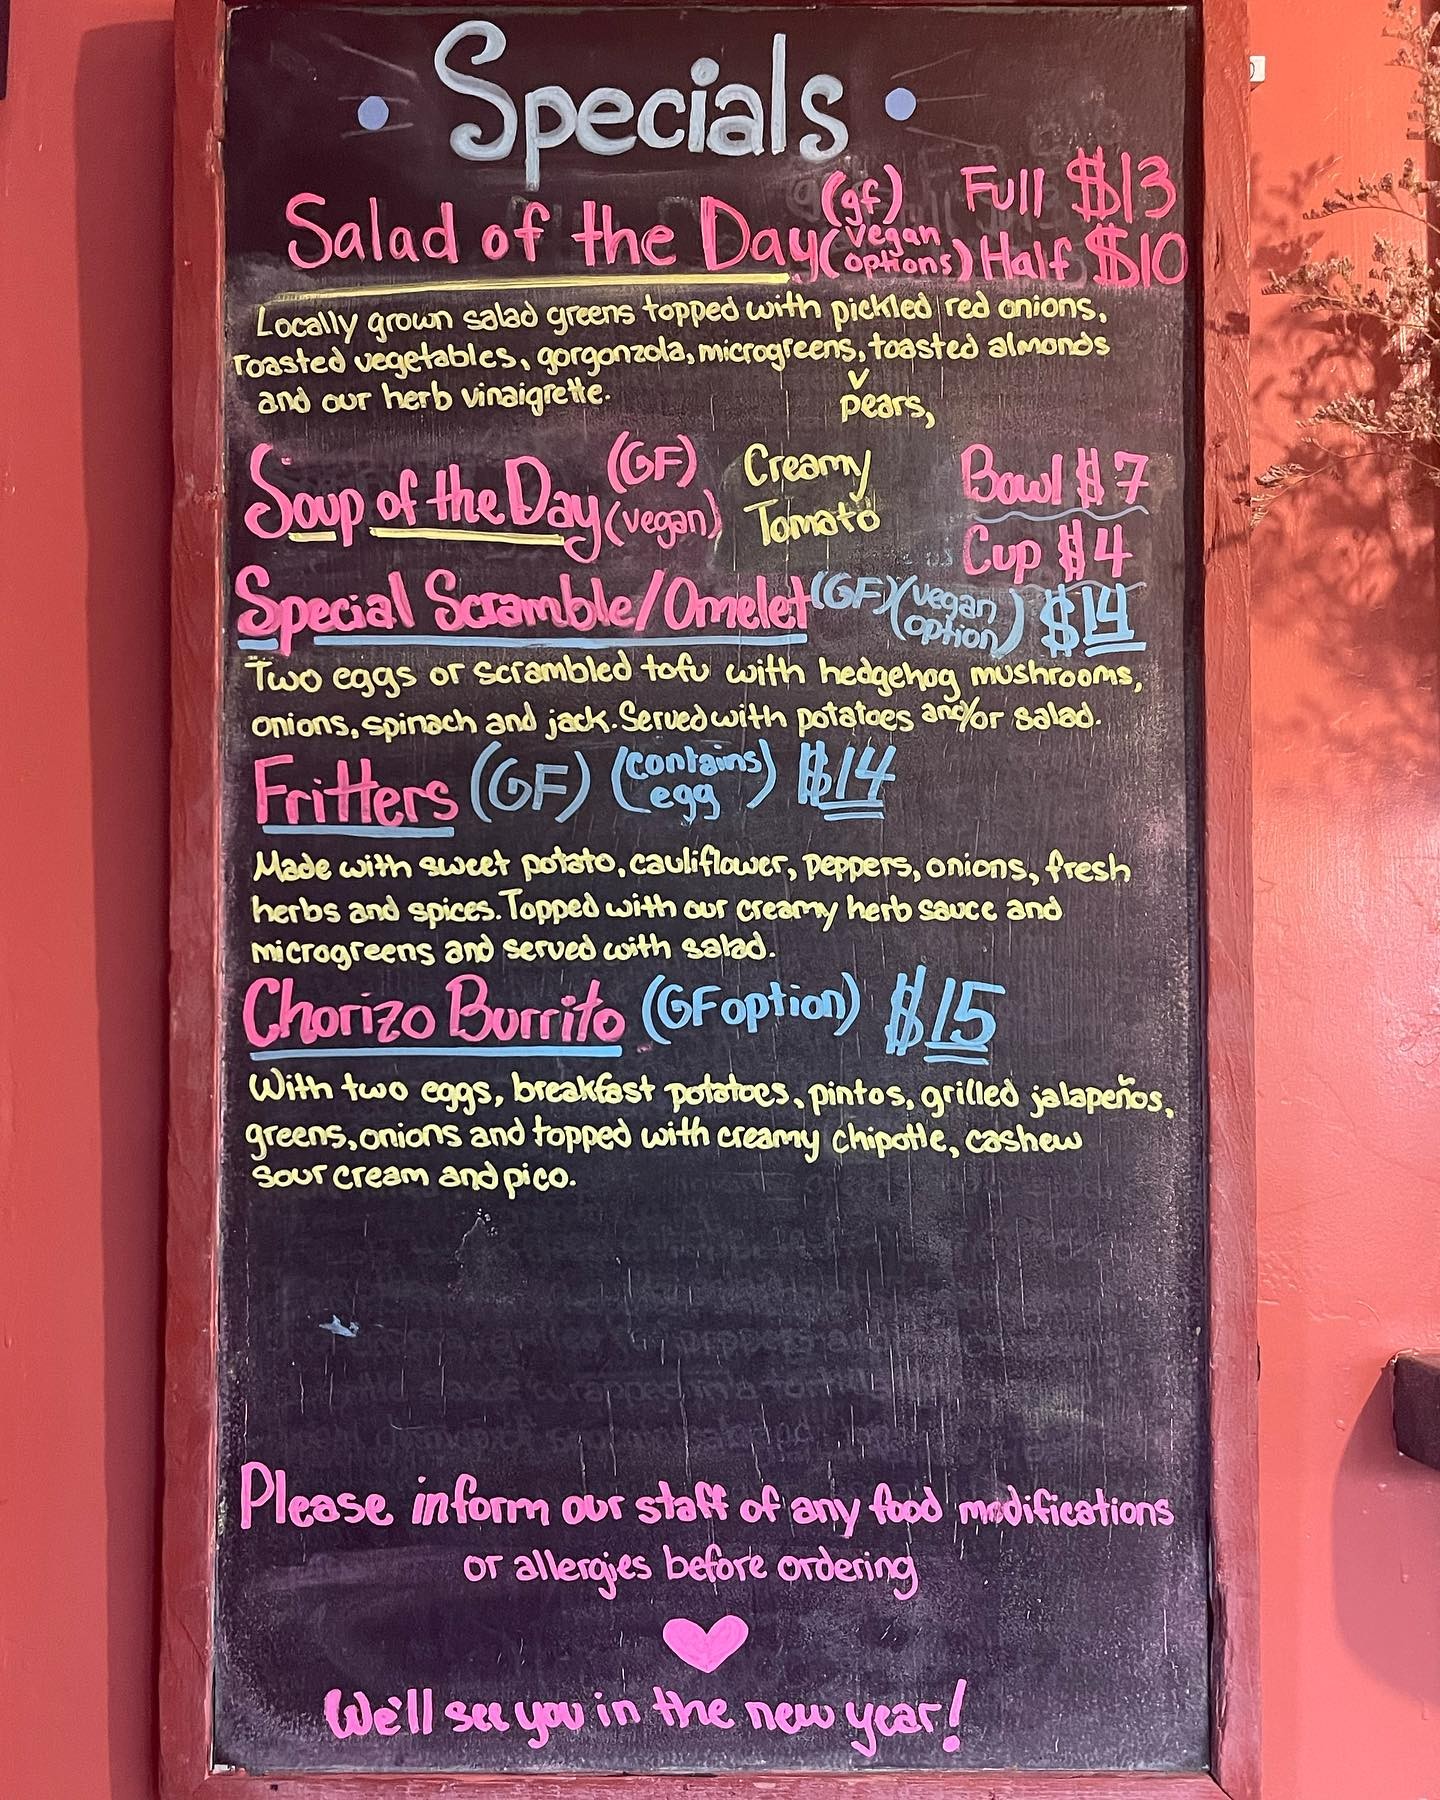 Specials
Salad of the Day (gf) (vegan options) Full $13
Half $10
Locally grown salad greens topped with pickled red onions,
roasted vegetables, gorgonzola, microgreens, toasted almonds
and our herb vinaigrette. pears,
Soup of the Day (GF) (vegan) Creamy Tomato Bowl $7
Cup $4
Special Scramble/Omelet (GF) (vegan option) $14
Two eggs or scrambled tofu with hedgehog mushrooms,
onions, spinach and jack. Served with potatoes and/or salad.
Fritters (GF) (contains egg) $14
Made with sweet potato, cauliflower, peppers, onions, fresh
herbs and spices. Topped with our creamy herb sauce and
microgreens and served with salad.
Chorizo Burrito (GF option) $15
With two eggs, breakfast potatoes, pintos, grilled jalapeños,
greens, onions and topped with creamy chipotle, cashew
sour cream and pico.
Please inform our staff of any food modifications
or allergies before ordering
We'll see you in the new year!